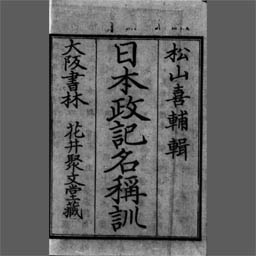 松山喜輔輯
日本政記名稱訓
大阪書林 花井聚文堂藏